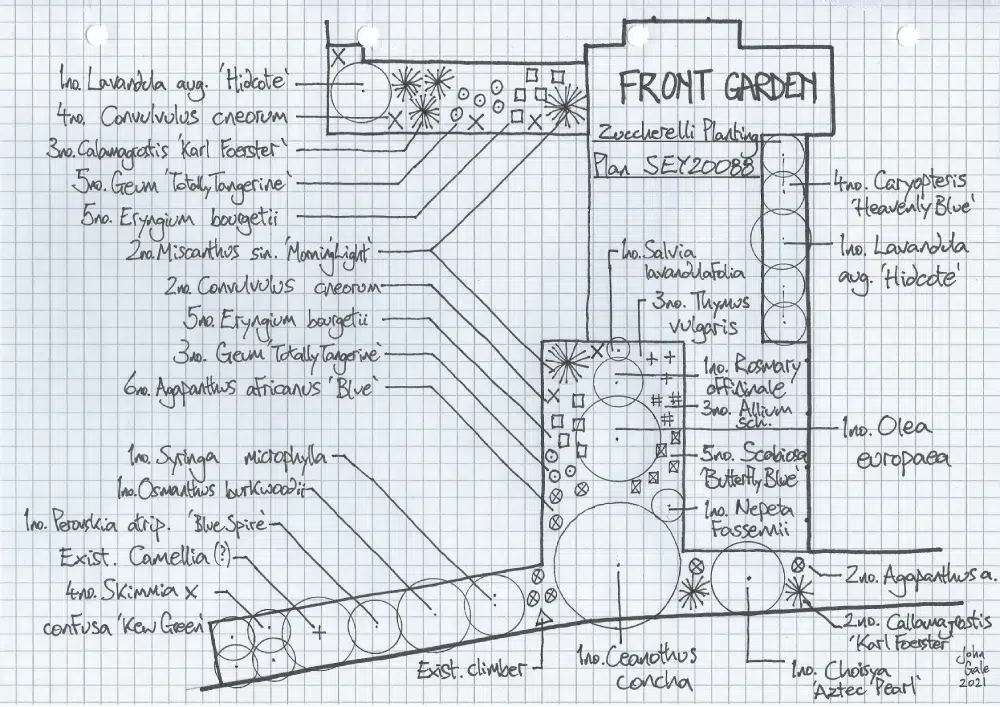 FRONT GARDEN
Zuccherelli Planting
Plan SEY20088
1no. Lavandula aug. 'Hidcote'
4no. Convulvulus cneorum
3no. Calamagrostis 'Karl Foerster'
5no. Geum 'Totally Tangerine'
5no. Eryngium bourgetii
2no. Miscanthus sin. 'Morning Light'
2no. Convulvulus cneorum
5no. Eryngium bourgetii
3no. Geum 'Totally Tangerine'
6no. Agapanthus africanus 'Blue'
1no. Syringa microphylla
1no. Osmanthus burkwoodii
1no. Perovskia atrip. 'Blue Spire'
Exist. Camellia (?)
4no. Skimmia x
confusa 'Kew Green'
4no. Caryopteris
'Heavenly Blue'
1no. Lavandula
aug. 'Hidcote'
1no. Salvia
lavandulafolia
3no. Thymus
vulgaris
1no. Rosmary
offidinale
3no. Allium
sch.
1no. Olea
europaea
5no. Scabiosa
'Butterfly Blue'
1no. Nepeta
Fassennii
2no. Agapanthus a.
2no. Callamagrostis
'Karl Foerster'
Exist. climber
1no. Ceanothus
concha
1no. Choisya
'Aztec Pearl'
John
Gale
2021